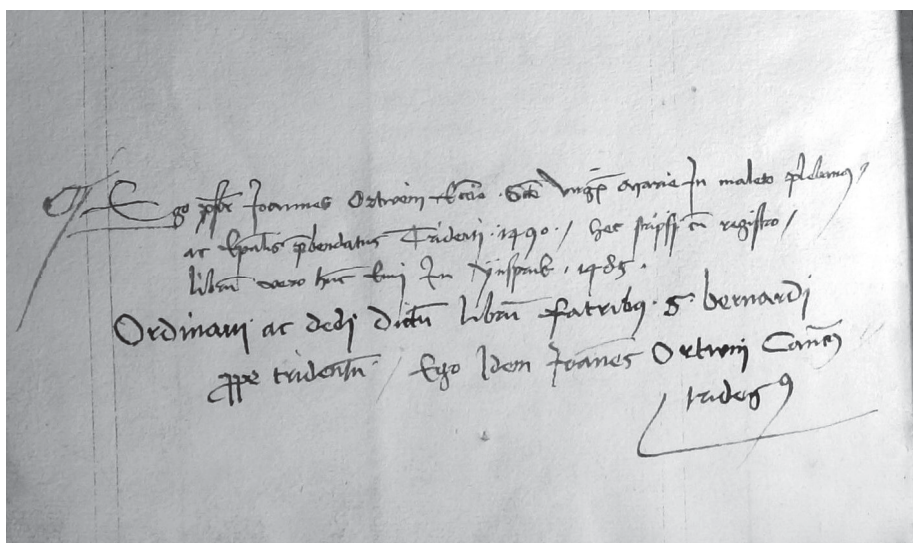 Ego pr̄br Joannes Ortwein Eccīe Sctē Virgīs Marie In maleto plebanus /
ac Ep̄alis p̄bendatus Tridenti · 1490 · / hec scripsi cū registro /
librū vero hūc Emi In ynsprub · 1485 ·
Ordinavi ac dedi dictū librū fratribus · S · bernardi
ꝓpe tridentū / Ego Idem Joānes Ortwein Canōcus